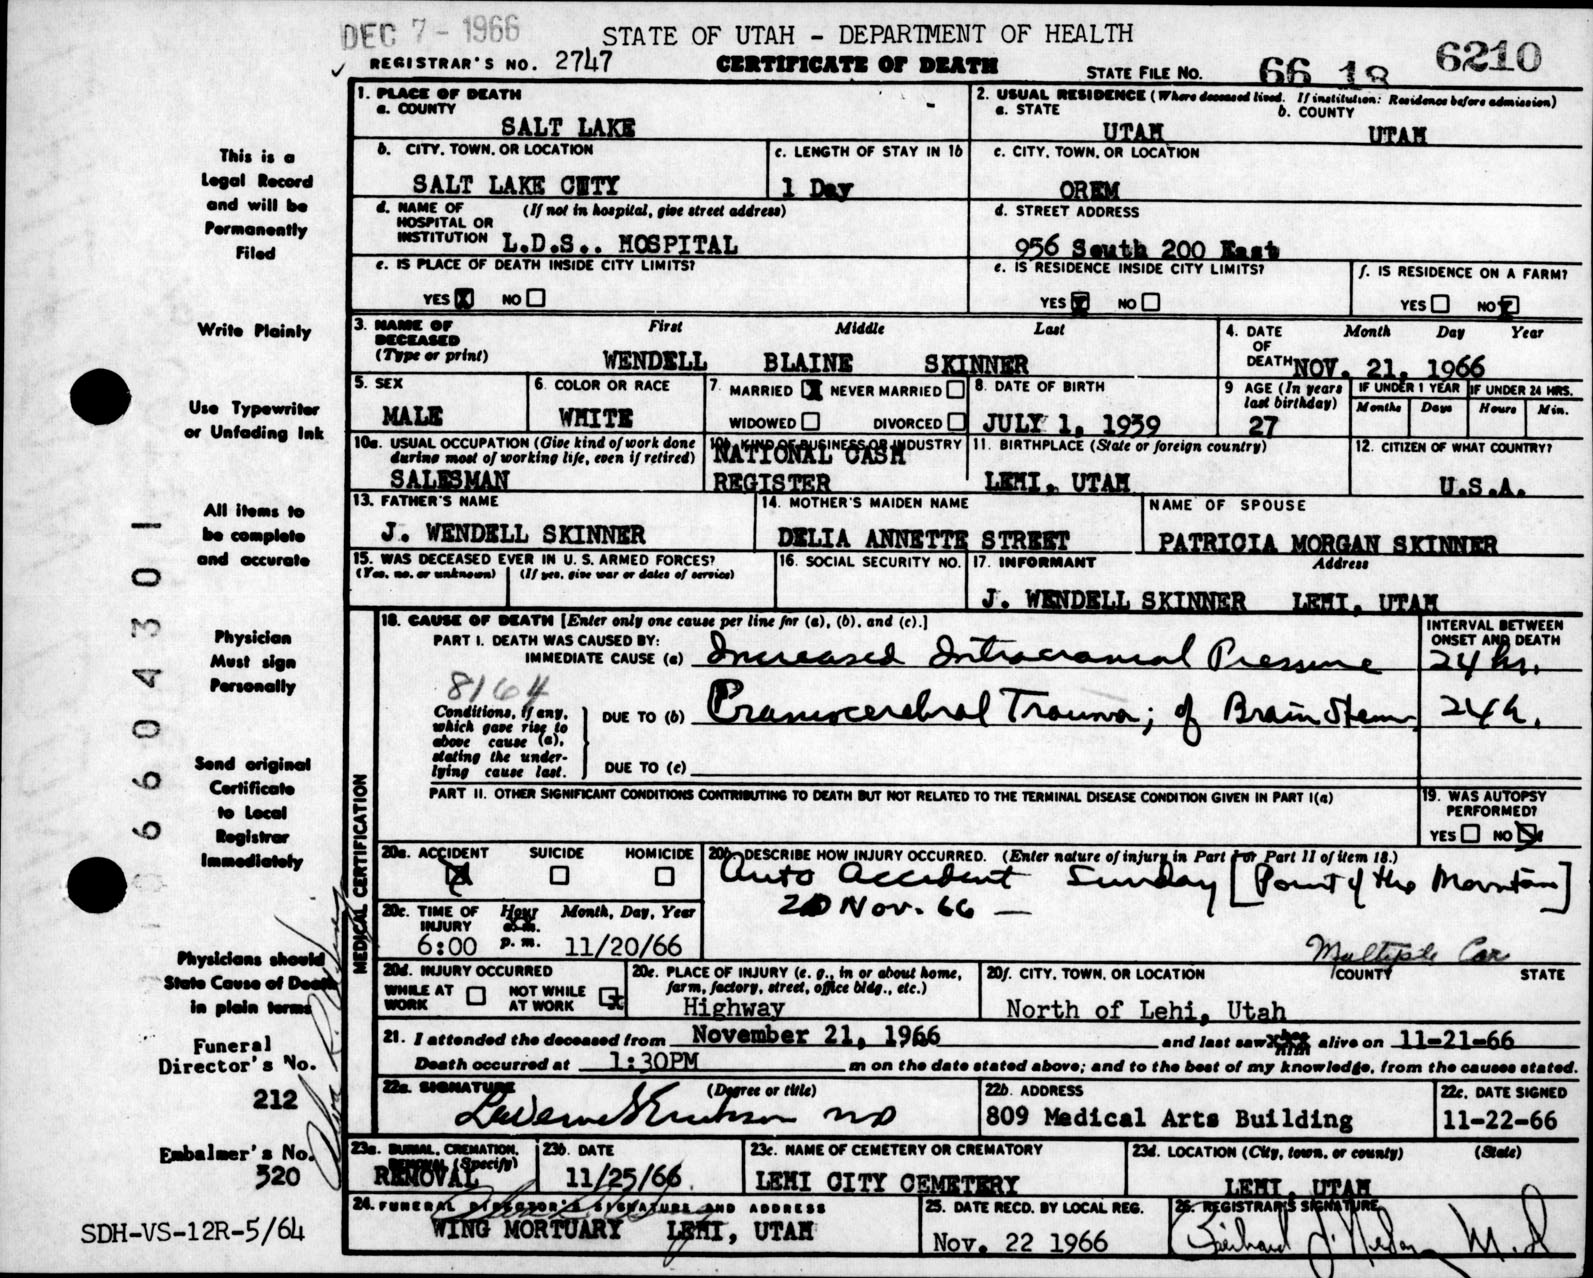 DEC 7 - 1966
STATE OF UTAH - DEPARTMENT OF HEALTH
REGISTRAR'S NO. 2747
CERTIFICATE OF DEATH
STATE FILE NO. 66 18 6210
This is a
Legal Record
and will be
Permanently
Filed
Write Plainly
Use Typewriter
or Unfading Ink
All items to
be complete
and accurate
Physician
Must sign
Personally
Send original
Certificate
to Local
Registrar
Immediately
Physicians should
State Cause of Death
in plain terms
Funeral
Director's No.
212
Embalmer's No.
320
SDH-VS-12R-5/64
1. PLACE OF DEATH
a. COUNTY
SALT LAKE
2. USUAL RESIDENCE (Where deceased lived. If institution: Residence before admission)
a. STATE
UTAH
b. COUNTY
UTAH
b. CITY, TOWN, OR LOCATION
SALT LAKE CITY
c. LENGTH OF STAY IN 1b
1 Day
c. CITY, TOWN, OR LOCATION
OREM
d. NAME OF HOSPITAL OR INSTITUTION
(If not in hospital, give street address)
L.D.S.. HOSPITAL
d. STREET ADDRESS
956 South 200 East
e. IS PLACE OF DEATH INSIDE CITY LIMITS?
YES X NO
e. IS RESIDENCE INSIDE CITY LIMITS?
YES X NO
f. IS RESIDENCE ON A FARM?
YES NO X
3. NAME OF DECEASED
(Type or print)
First Middle Last
WENDELL BLAINE SKINNER
4. DATE OF DEATH
Month Day Year
NOV. 21, 1966
5. SEX
MALE
6. COLOR OR RACE
WHITE
7. MARRIED X NEVER MARRIED
WIDOWED DIVORCED
8. DATE OF BIRTH
JULY 1, 1939
9 AGE (In years last birthday)
27
IF UNDER 1 YEAR
Months Days
IF UNDER 24 HRS.
Hours Min.
10a. USUAL OCCUPATION (Give kind of work done
during most of working life, even if retired)
SALESMAN
10b. KIND OF BUSINESS OR INDUSTRY
NATIONAL CASH
REGISTER
11. BIRTHPLACE (State or foreign country)
LEHI, UTAH
12. CITIZEN OF WHAT COUNTRY?
U.S.A.
13. FATHER'S NAME
J. WENDELL SKINNER
14. MOTHER'S MAIDEN NAME
DELIA ANNETTE STREET
NAME OF SPOUSE
PATRICIA MORGAN SKINNER
15. WAS DECEASED EVER IN U. S. ARMED FORCES?
(Yes, no, or unknown) (If yes, give war or dates of service)
16. SOCIAL SECURITY NO.
17. INFORMANT Address
J. WENDELL SKINNER LEHI, UTAH
MEDICAL CERTIFICATION
18. CAUSE OF DEATH [Enter only one cause per line for (a), (b), and (c).]
INTERVAL BETWEEN
ONSET AND DEATH
PART I. DEATH WAS CAUSED BY:
IMMEDIATE CAUSE (a) Increased Intracranial Pressure 24 hr.
8164
Conditions, if any,
which gave rise to
above cause (a),
stating the under-
lying cause last.
DUE TO (b) Craniocerebral Trauma; of Brain Stem 24 h.
DUE TO (c)
PART II. OTHER SIGNIFICANT CONDITIONS CONTRIBUTING TO DEATH BUT NOT RELATED TO THE TERMINAL DISEASE CONDITION GIVEN IN PART I(a)
19. WAS AUTOPSY
PERFORMED?
YES NO X
20a. ACCIDENT SUICIDE HOMICIDE
X
20b. DESCRIBE HOW INJURY OCCURRED. (Enter nature of injury in Part I or Part II of item 18.)
Auto accident Sunday [Point of the Mountain]
20 Nov. 66 —
Multiple Car
20c. TIME OF INJURY
Hour a.m. p.m.
Month, Day, Year
6:00 11/20/66
20d. INJURY OCCURRED
WHILE AT WORK NOT WHILE AT WORK X
20e. PLACE OF INJURY (e. g., in or about home,
farm, factory, street, office bldg., etc.)
Highway
20f. CITY, TOWN, OR LOCATION COUNTY STATE
North of Lehi, Utah
21. I attended the deceased from November 21, 1966 and last saw him alive on 11-21-66
Death occurred at 1:30PM m on the date stated above; and to the best of my knowledge, from the causes stated.
22a. SIGNATURE (Degree or title)
MD
22b. ADDRESS
809 Medical Arts Building
22c. DATE SIGNED
11-22-66
23a. BURIAL, CREMATION,
REMOVAL (Specify)
REMOVAL
23b. DATE
11/25/66
23c. NAME OF CEMETERY OR CREMATORY
LEHI CITY CEMETERY
23d. LOCATION (City, town, or county) (State)
LEHI, UTAH
24. FUNERAL DIRECTOR'S SIGNATURE AND ADDRESS
WING MORTUARY LEHI, UTAH
25. DATE RECD. BY LOCAL REG.
Nov. 22 1966
26. REGISTRAR'S SIGNATURE
M.D